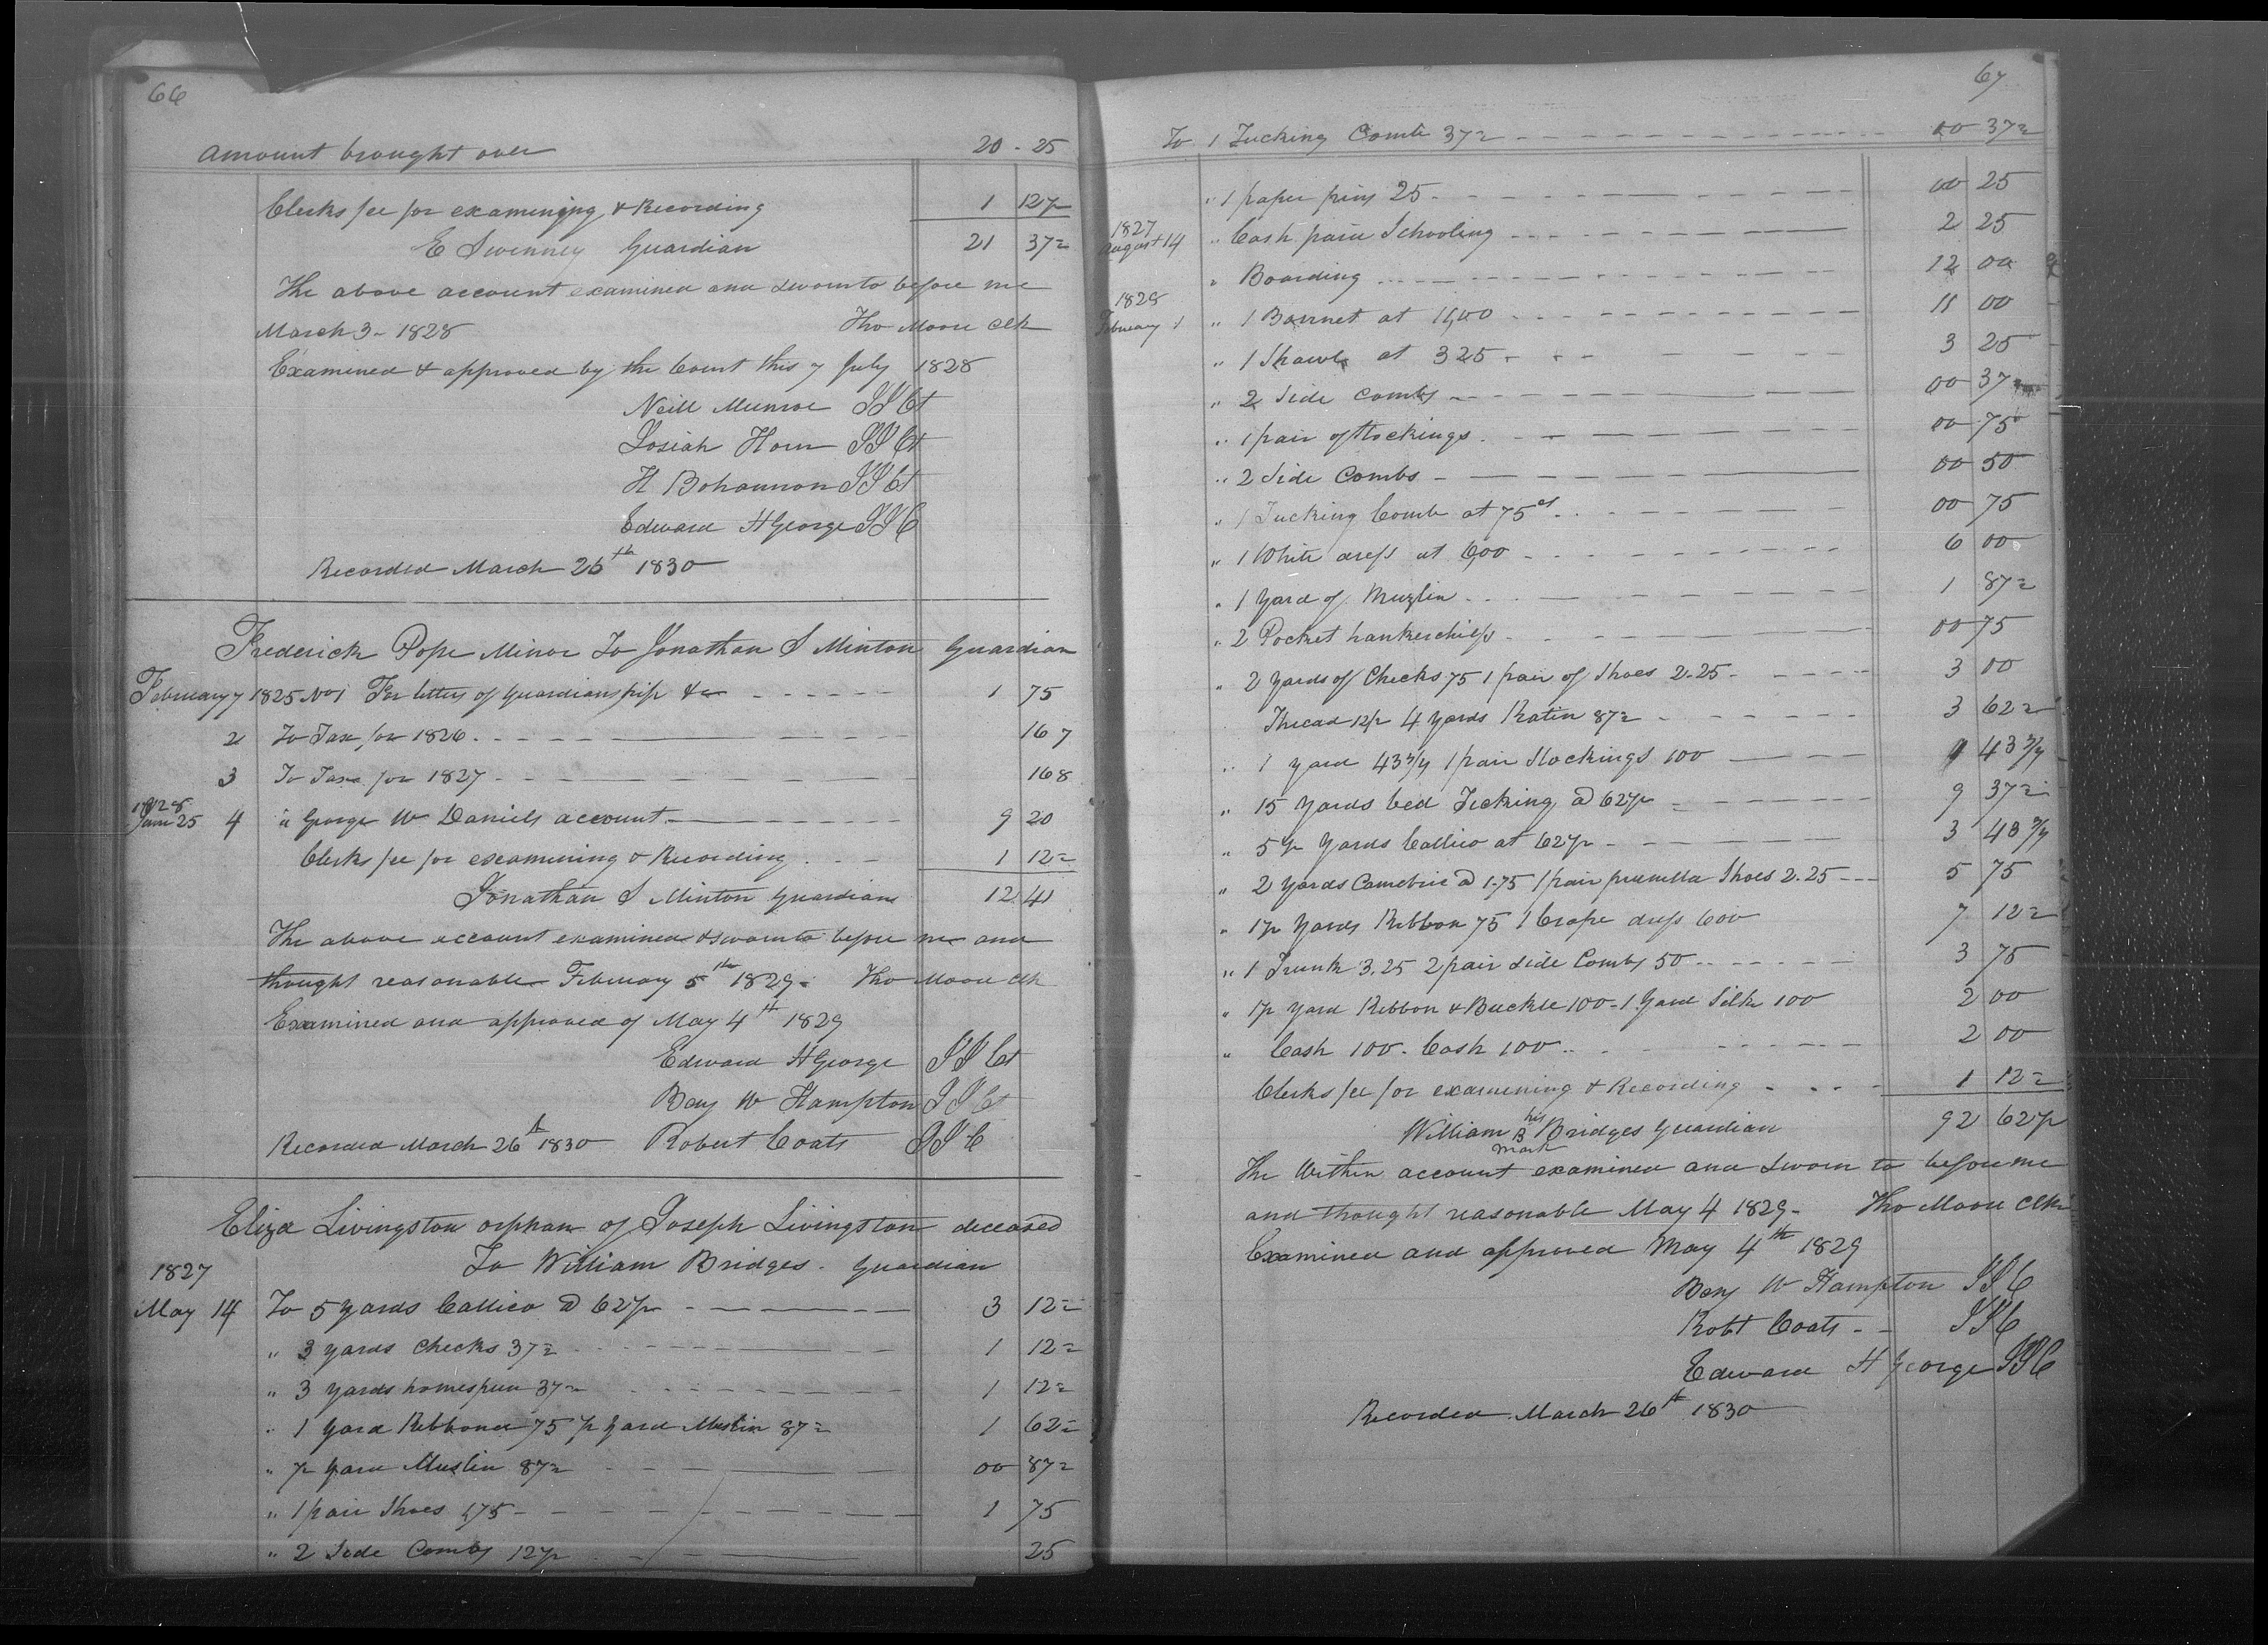 66
Amount brought over 20 - 25
Clerks fee for examening & Recording 1 12½
E Swenney Guardian 21 37½
The above account examined and sworn to before me
March 3 - 1828 Tho Moore Clk
Examined & approved by the Court this 7 July 1828
Neill Munroe JJCt
Josiah Horn JJCt
H Bohannon JJCt
Edward H George JJC
Recorded March 26th 1830
Frederick Pope Minor To Jonathan S Minton Guardian
February 7 1825 No 1 For letters of Guardianship &c 1 75
2 To Tax for 1826 16 7
3 To Tax for 1827 16 8
1828
Jany 25 4 " George W Daniels account 9 20
Clerks fee for examining & Recording 1 12½
Jonathan S Minton Guardian 12 41
The above account examined & sworn to before me and
thought reasonable February 5th 1829. Tho Moore Clk
Examined and approved of May 4th 1829
Edward H George JJCt
Benj W Hampton JJCt
Recorded March 26th 1830 Robert Coats JJC
Eliza Livingston orphan of Joseph Livingston deceased
1827 To William Bridges. Guardian
May 14 To 5 yards Callico @ 62½ 3 12½
" 3 yards Checks 37½ 1 12½
" 3 yards homespun 37½ 1 12½
" 1 yard Ribband 75 ½ yard Muslin 87½ 1 62½
" ½ yard Muslin 87½ 00 87½
" 1 pair Shoes 175 1 75
" 2 Side Combs 12½ 25
67
To 1 Tucking Comb 37½ 00 37½
" 1 paper pins 25 00 25
1827
August 14 " Cash paid Schooling 2 25
" Boarding 12 00
1828
February 1 " 1 Bonnet at 11,00 11 00
" 1 Shawl at 325 3 25
" 2 Side combs 00 37
" 1 pair of Stockings 00 75
" 2 Side Combs 00 50
" 1 Tucking Comb at 75cts 00 75
" 1 White dress at 6,00 6 00
" 1 Yard of Muzlin 1 87½
" 2 Pocket hankerchiefs 00 75
" 2 yards of Checks 75 1 pair of Shoes 2.25 3 00
Thread 12½ 4 yards Ratin 87½ 3 62½
" 1 yard 43¾ 1 pair Stockings 100 1 43¾
" 15 yards bed Ticking @ 62½ 9 37½
" 5½ yards Callico at 62½ 3 43¾
" 2 yards Cambric @ 1.75 1 pair prunella Shoes 2.25 5 75
" 1½ yards Ribbon 75 1 Crape dress 600 7 12½
" 1 Trunk 3.25 2 pair side Combs 50 3 75
" 1½ yard Ribbon & Buckle 100 - 1 yard Silk 100 2 00
" Cash 100. Cash 100 2 00
Clerks fee for examening & Recording 1 12½
his
William B Bridges Guardian 92 62½
mark
The Within account examined and sworn to before me
and thought reasonable May 4 1829 - Tho Moore Clk
Examined and approved May 4th 1829
Benj W Hampton JJC
Robt Coats JJC
Edward H George JJC
Recorded March 26th 1830